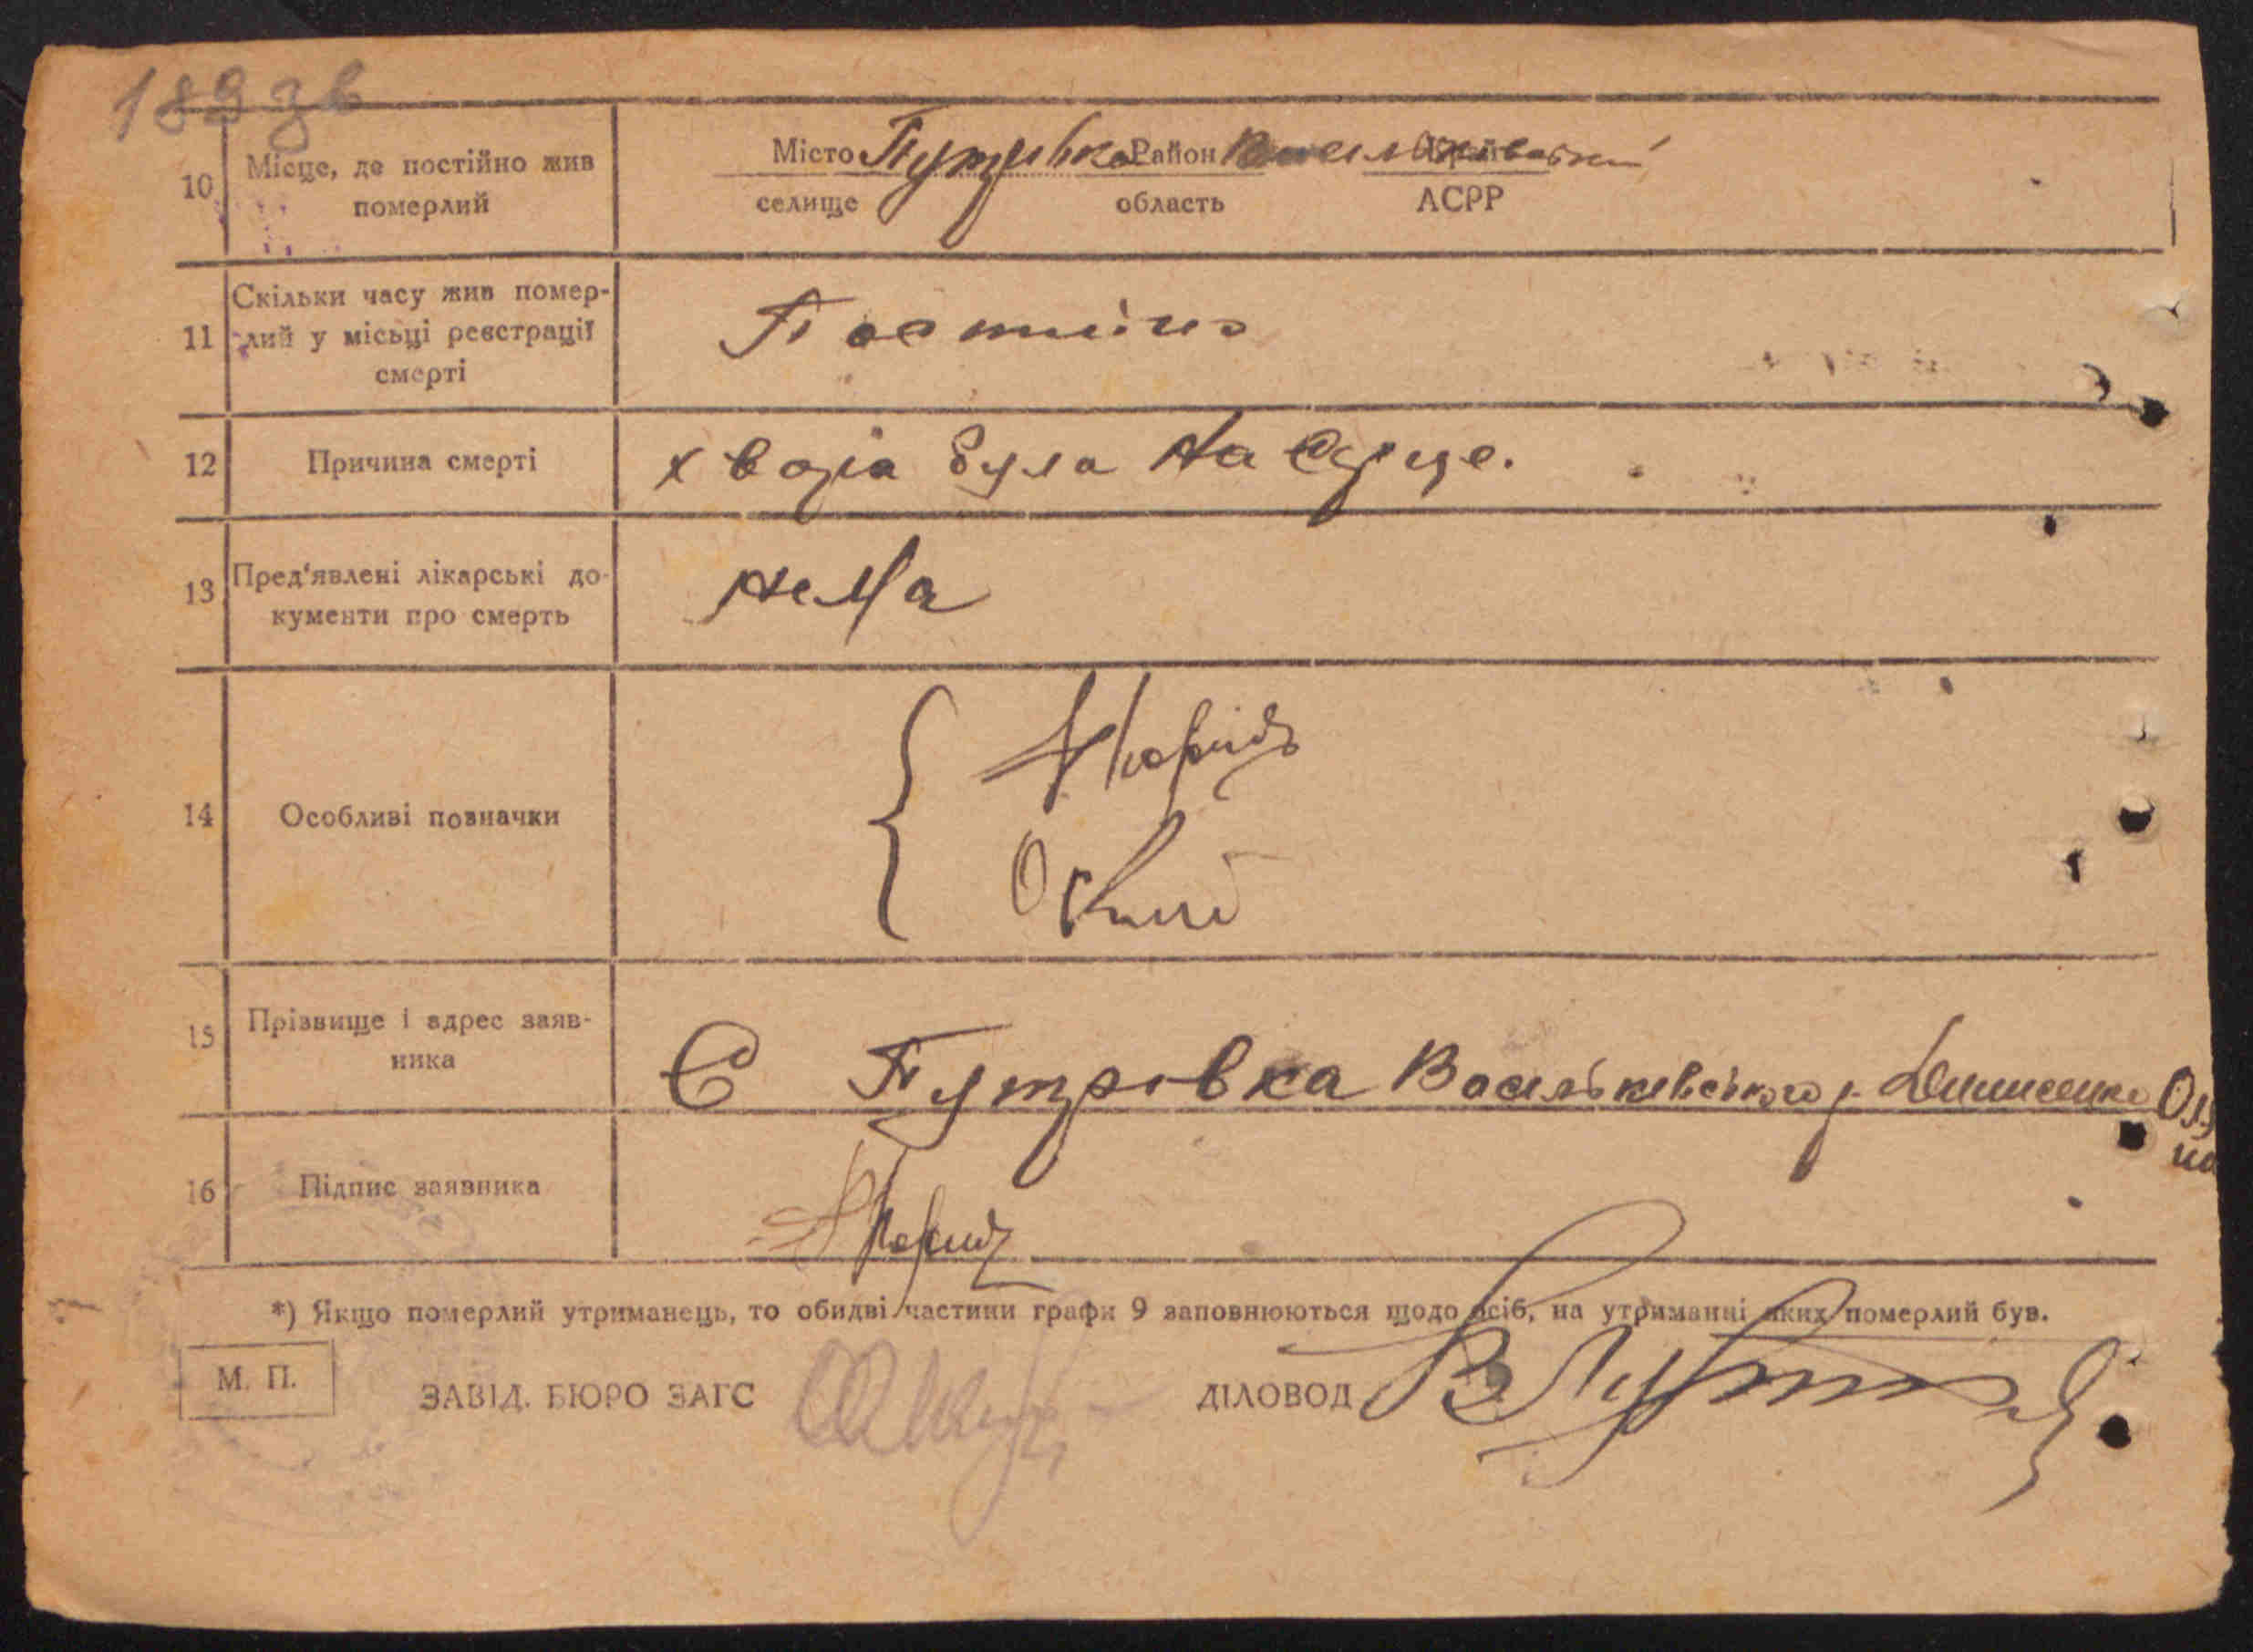 189 зв
10 Місце, де постійно жив
померлий
Місто Путрівка Район Васильківський
селище область АСРР
11 Скільки часу жив помер-
лий у місьці реєстрації
смерті
Постійно
12 Причина смерті хвора була на сєрце.
13 Пред'явлені лікарські до-
кументи про смерть
нема
14 Особливі позначки
15 Прізвище і адрес заяв-
ника
С Путровка Васильківського р. Денисенко
16 Підпис заявника
*) Якщо померлий утриманець, то обидві частини графи 9 заповнюються щодо осіб, на утриманні яких померлий був.
М. П.
ЗАВІД. БЮРО ЗАГС ДІЛОВОД